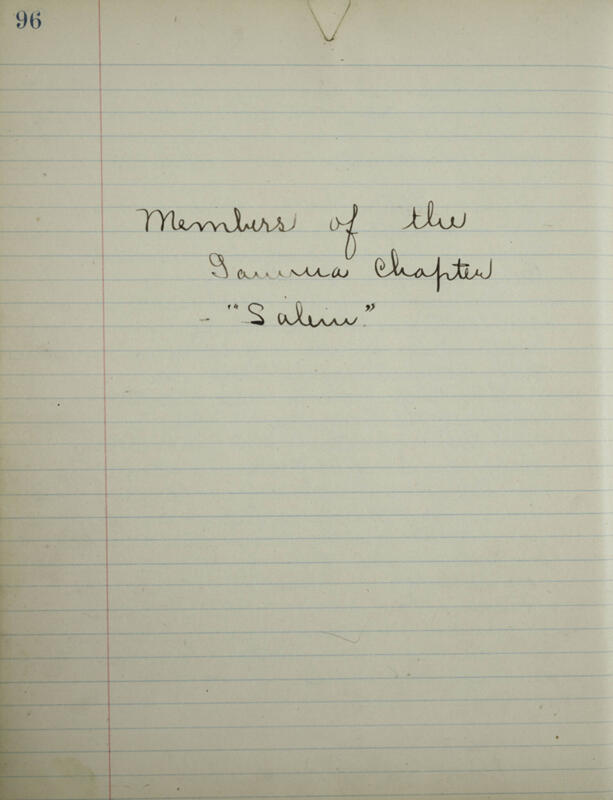 96
Members of the
Gamma Chapter
- "Salem"